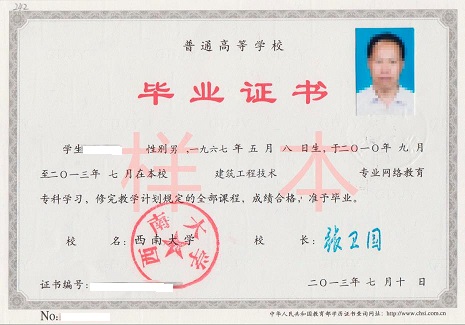 242
普通高等学校
毕业证书
学生 性别男，一九六七年 五 月 八 日生，于二〇一〇年 九 月
至二〇一三年 七 月在本校 建筑工程技术 专业网络教育
专科学习，修完教学计划规定的全部课程，成绩合格，准予毕业。
样本
校 名：西南大学 校 长：张卫国
西南大学
证书编号： 二〇一三年 七 月 十 日
No:
中华人民共和国教育部学历证书查询网址：http://www.chsi.com.cn